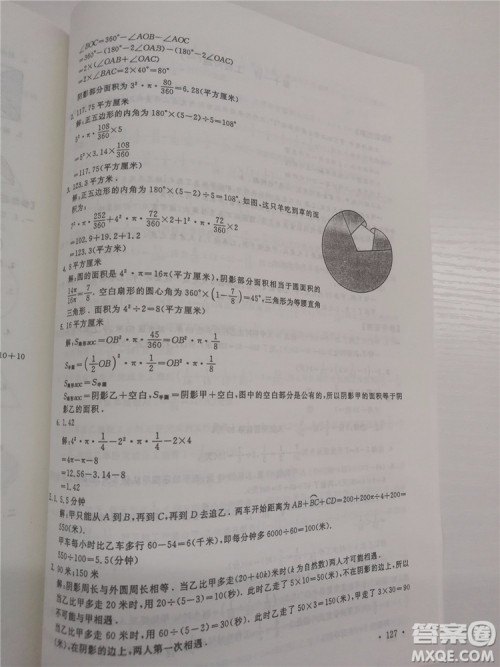 ∠BOC=360°-∠AOB-∠AOC
=360°-(180°-2∠OAB)-(180°-2∠OAC)
=2×(∠OAB+∠OAC)
=2×∠BAC=2×40°=80°
阴影部分面积 3²·π·80/360=6.28(平方厘米)
2. 117.75平方厘米
解:正五边形的内角为 180°×(5-2)÷5=108°
5²·π·108/360×5
=5³×3.14×108/360
=117.75(平方厘米)
3. 123.3平方厘米
解:正五边形的内角为 180°×(5-2)÷5=108°.如图,这只羊吃到草的面
积为:
7²·π·252/360+4²·π·72/360×2+1²·π·72/360×2
=102.9+19.2+1.2
=123.3(平方厘米)
4. 8平方厘米
解:圆的面积是 4²·π=16π(平方厘米),阴影部分面积相当于圆面积的
14π/16π=7/8. 空白扇形的圆心角为 360°×(1-7/8)=45°,三角形为等腰直角
三角形. 面积 4²÷2=8(平方厘米)
5. 16平方厘米
=OB²·π·45/360=OB²·π·1/8
=(1/2OB)²·π·1/2=OB²·π·1/8
=阴影乙+空白, =阴影甲+空白,图中的空白部分是公有的,所以阴影甲的面积等于阴
影乙的面积.
6. 1.42
解:4²·π·1/4-2²·π·1/4-2×4
=4π-π-8
=12.56-3.14-8
=1.42
1. 5.5分钟
解:甲只能从 A 到 B,再从 B 到 C,再从 C 到 D 去追乙. 两车开始距离为 AB+BC+CD=200+200π÷4+200=
550(米).
甲车每小时比乙车多行 60-54=6(千米),即每分钟多行 6000÷60=100(米).
550÷100=5.5(分钟)
2. 90米;150米
解:阴影周长与外圆周长相等. 当乙比甲多走 (20+40k)米时(k为自然数)两人才可能相遇.
当乙比甲多走 20 米时,用 20÷(5-3)=10(秒).
当乙比甲多走 60 米时,用 60÷(5-3)=30(秒).
在阴影的边上,两人第一次相遇.
10+10
· 127 ·
答案圈
MXQE.COM